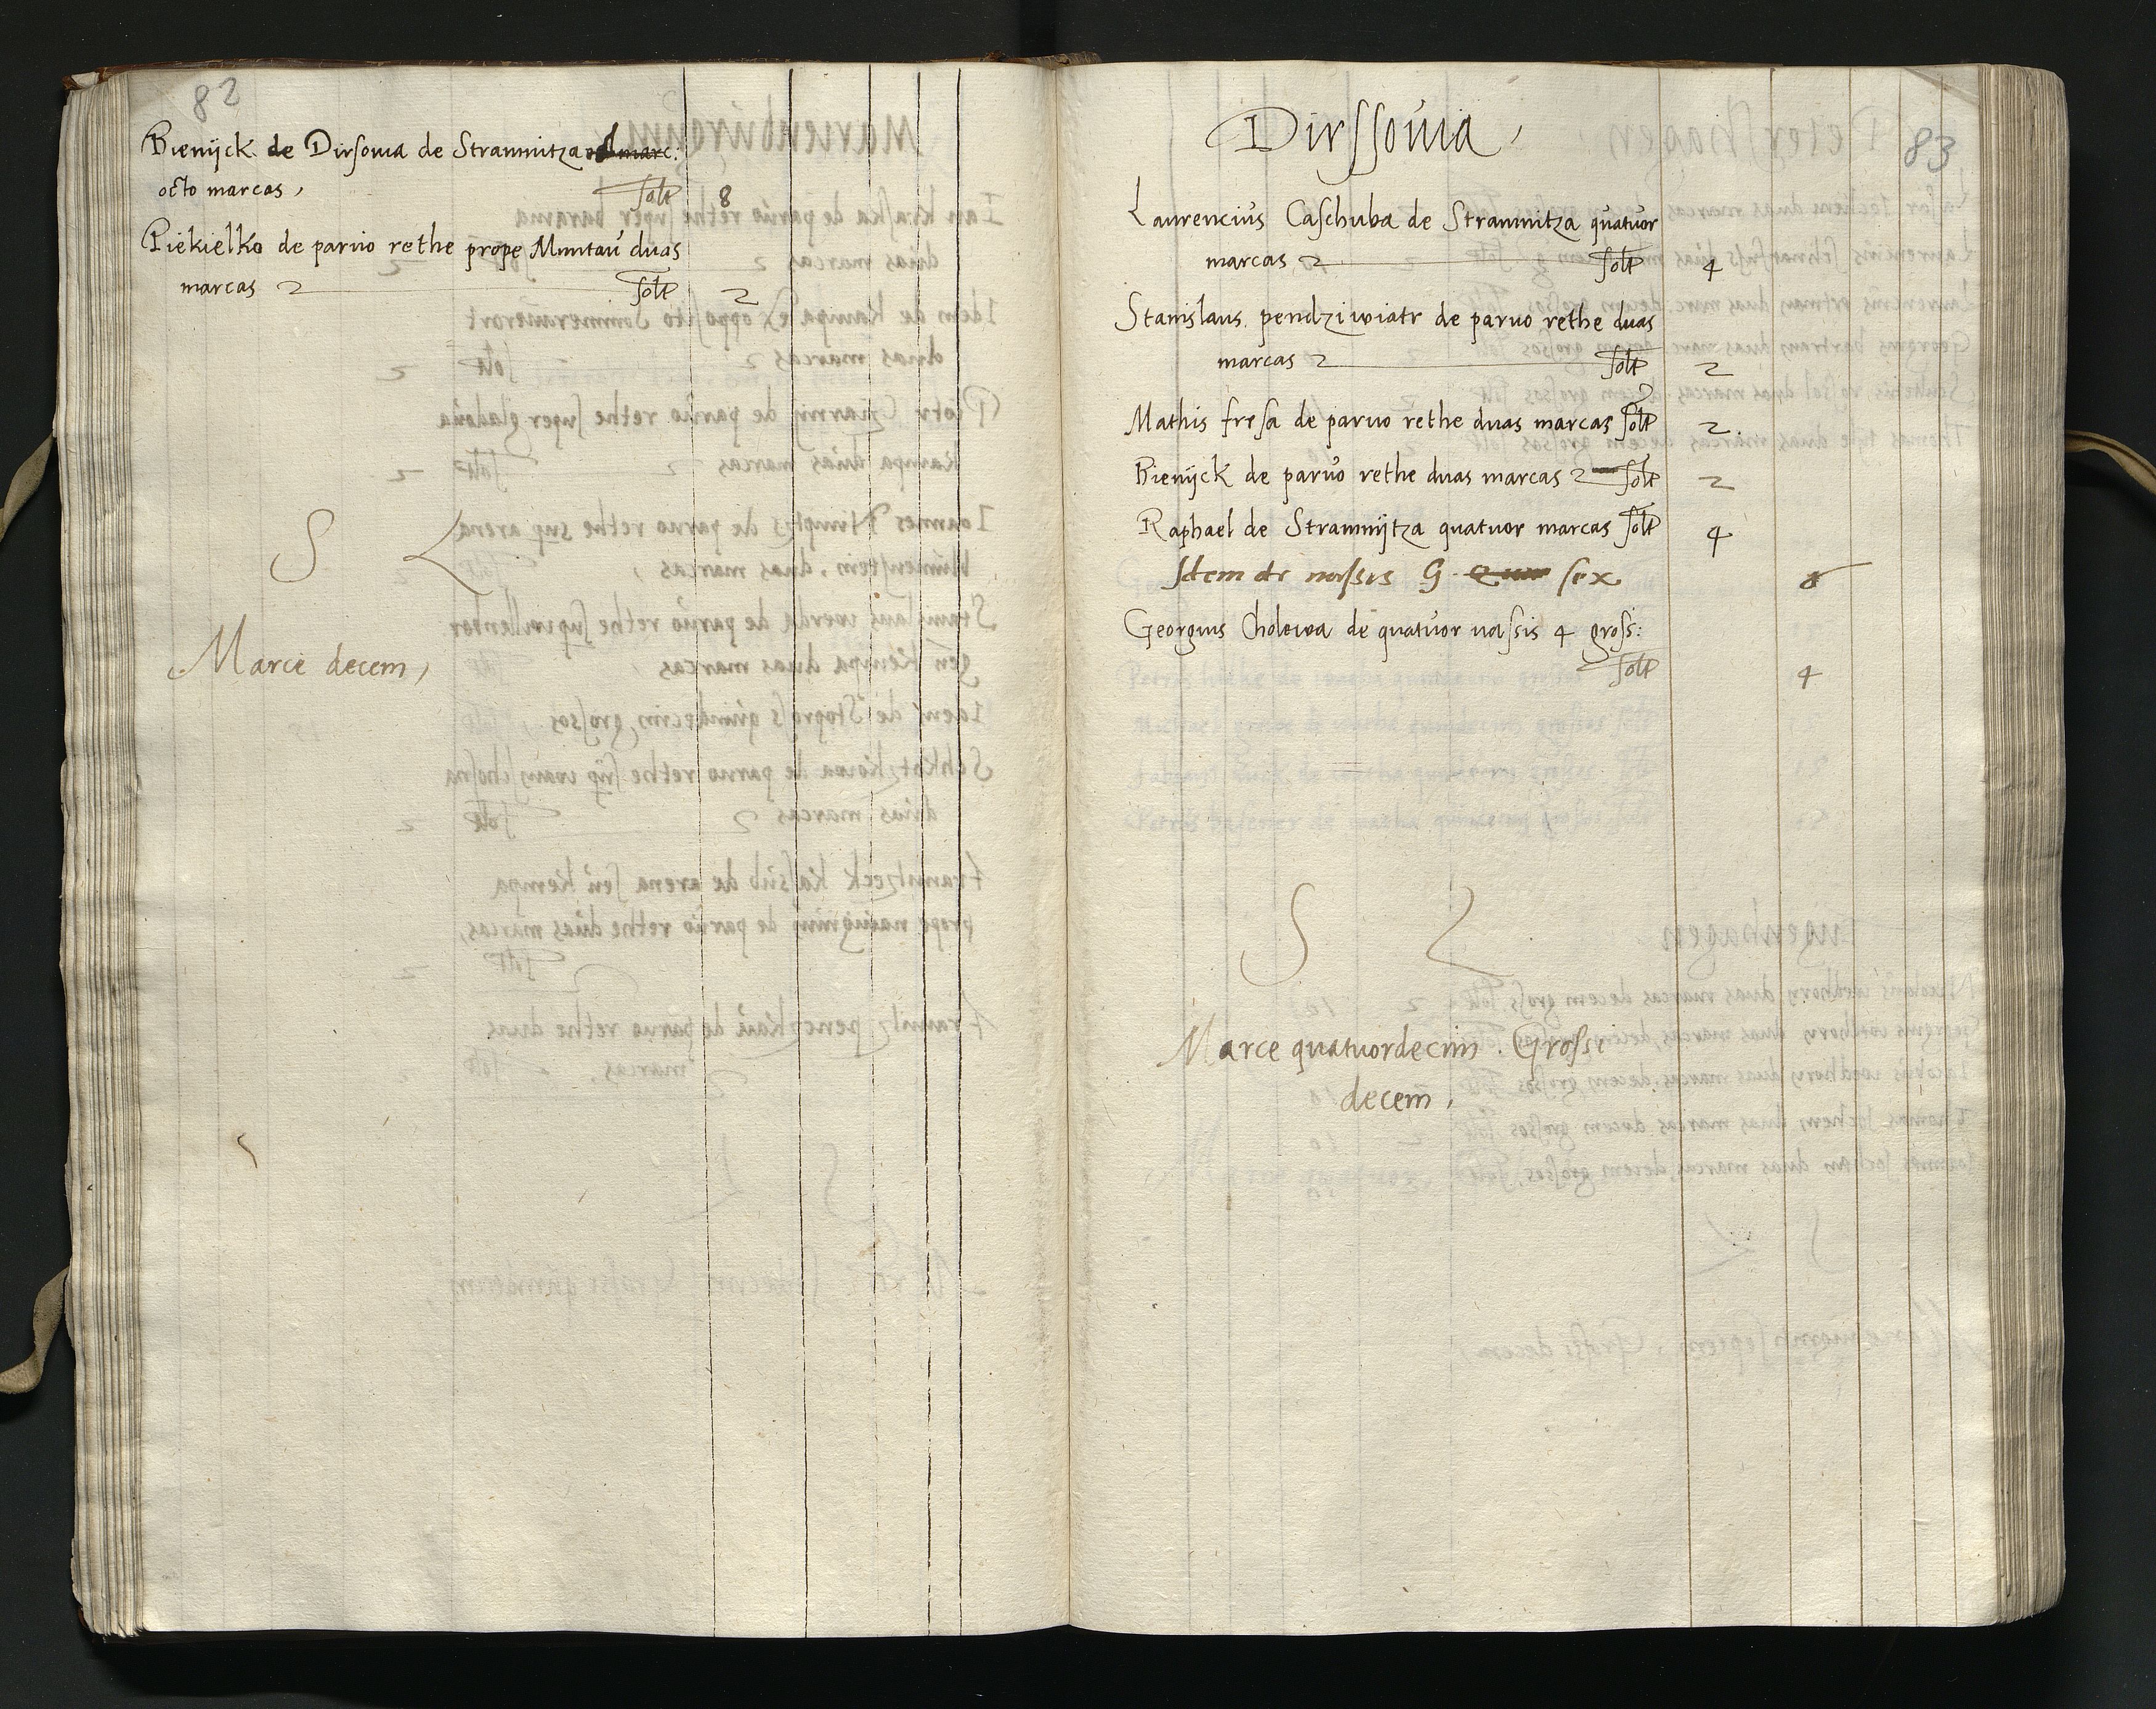 82
Bienijck de Dirsowa de Stramnitza oct marc:
octo marcas, solt 8
Piekielko de paruo rethe prope Muntaŭ duas
marcas 2 solt 2
S
Marce decem,
83
Dirssouia,
Laurenciŭs Caschuba de Stramnitza quatuor
marcas 2 solt 4
Stanislaus pendziwiatr de paruo rethe duas
marcas 2 solt 2
Mathis fresa de paruo rethe duas marcas solt 2
Bienijck de parŭo rethe duas marcas 2 solt 2
Raphael de Stramnijtza quatuor marcas solt 4
Idem de nassis G sex
Georgius Cholewa de quatŭor nassis 4 gross:
solt 4
S
Marce quatuordecim. Grossi
decem,